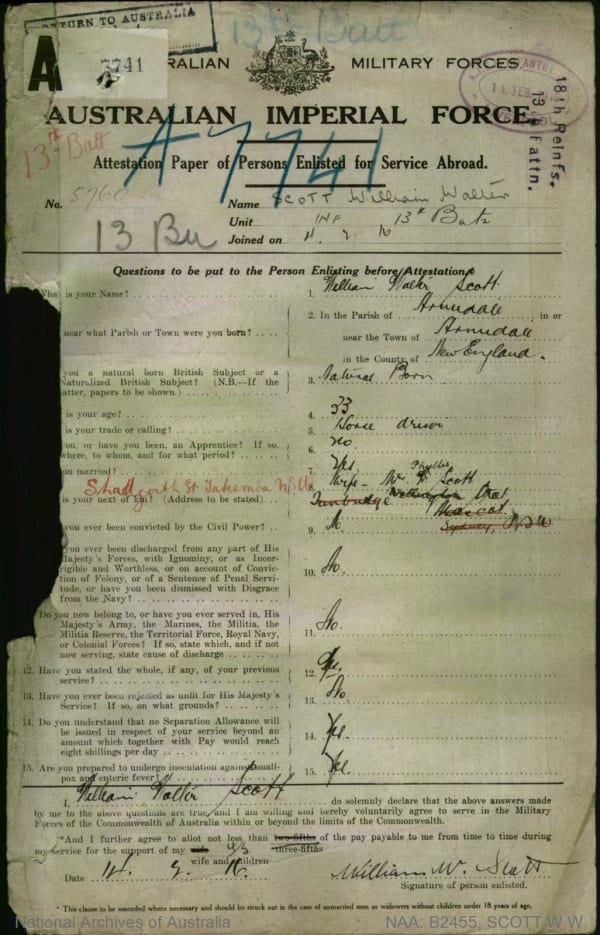 RETURN TO AUSTRALIA
13th Batt
A 7741
AUSTRALIAN MILITARY FORCES.
18th Reinfs.
13 Battn.
AUSTRALIAN IMPERIAL FORCE.
13th Batt
A 7741
Attestation Paper of Persons Enlisted for Service Abroad.
No. Name SCOTT William Walter
Unit INF 13th Batn
13 Bn
Joined on
Questions to be put to the Person Enlisting before Attestation.
What is your Name? 1. William Walter Scott
2. In the Parish of Armidale in or
near what Parish or Town were you born? near the Town of Armidale
in the County of New England.
you a natural born British Subject or a
Naturalized British Subject? (N.B.—If the
atter, papers to be shown.) 3. Natural Born
is your age? 4. 33
is your trade or calling? 5. Horse driver
ou, or have you been, an Apprentice? If so,
where, to whom, and for what period? 6. No
ou married? 7. Yes
Shadforth St Wife - Mrs Phyllis Scott
is your next of kin? (Address to be stated) 8. Wellington Street
Mascot
you ever been convicted by the Civil Power? 9. No Sydney, NSW
you ever been discharged from any part of His
Majesty's Forces, with Ignominy, or as Incor-
rigible and Worthless, or on account of Convic-
tion of Felony, or of a Sentence of Penal Servi-
tude, or have you been dismissed with Disgrace
from the Navy? 10. No.
Do you now belong to, or have you ever served in, His
Majesty's Army, the Marines, the Militia, the
Militia Reserve, the Territorial Force, Royal Navy,
or Colonial Forces? If so, state which, and if not
now serving, state cause of discharge 11. No.
12. Have you stated the whole, if any, of your previous
service? 12. Yes.
13. Have you ever been rejected as unfit for His Majesty's
Service? If so, on what grounds? 13. No
14. Do you understand that no Separation Allowance will
be issued in respect of your service beyond an
amount which together with Pay would reach
eight shillings per day 14. Yes
15. Are you prepared to undergo inoculation against small-
pox and enteric fever? 15. Yes.
I, William Walter Scott do solemnly declare that the above answers made
by me to the above questions are true, and I am willing and hereby voluntarily agree to serve in the Military
Forces of the Commonwealth of Australia within or beyond the limits of the Commonwealth.
*And I further agree to allot not less than two-fifths of the pay payable to me from time to time during
three-fifths
my service for the support of my wife
wife and children
Date William W. Scott
Signature of person enlisted.
* This clause to be amended where necessary and should be struck out in the case of unmarried men or widowers without children under 18 years of age.
National Archives of Australia NAA: B2455, SCOTT W W